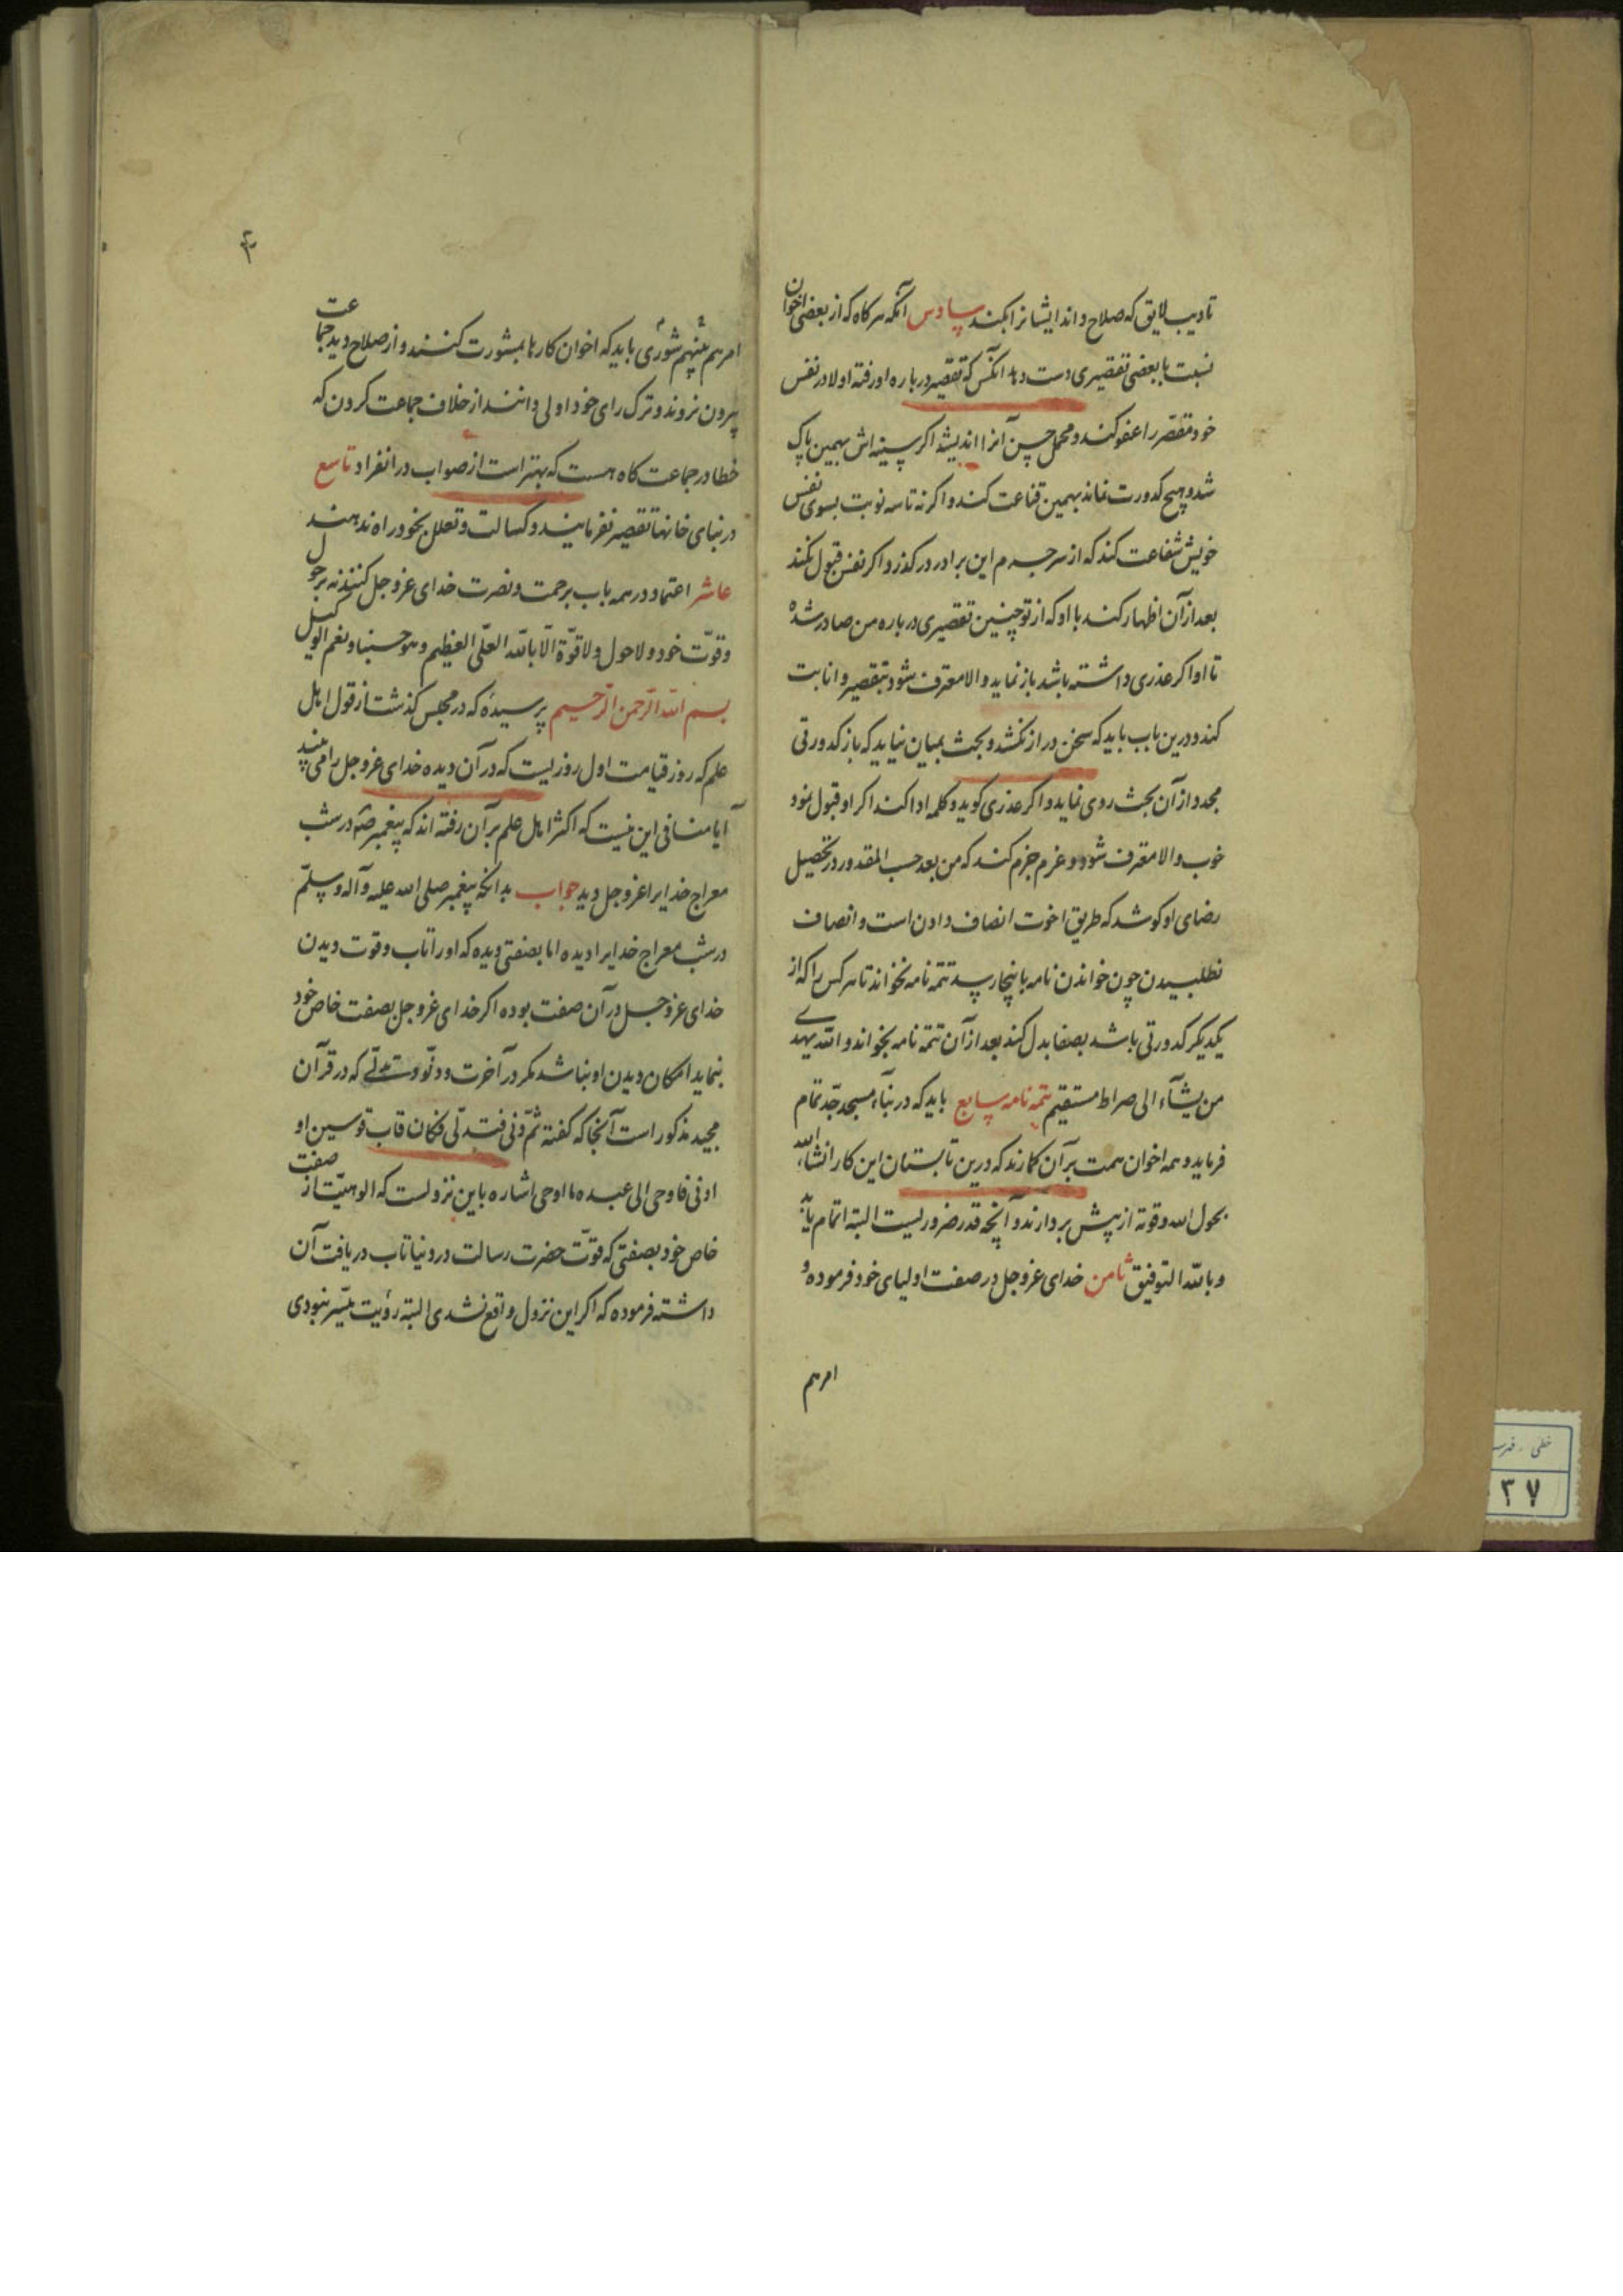 تادیب لایق که صلاح داند ایشانرا بکند سادس آنکه هرکاه که از بعضی اخوان
نسبت با بعضی تقصیری دست دهد آنکس که تقصیر درباره او رفته اولا در نفس
خود مقصّر را عفو کند و محمل حسن آنرا اندیشد اکر سینه اش بهمین پاک
شد و هیچ کدورت نماند بهمین قناعت کند و اکر نه تا سه نوبت بسوی نفس
خویش شفاعت کند که از سر جرم این برادر درکذرد و اکر نفس قبول نکند
بعد از آن اظهار کند با او که از تو چنین تقصیری درباره من صادر شده
تا او اکر عذری داشته باشد باز نماید والا معترف شود بتقصیر و انابت
کند و درین باب باید که سخن دراز نکشد و بحث بمیان نیاید که باز کدورتی
مجدد از آن بحث روی نماید و اکر عذری کوید و کلمه ادا کند اکر او قبول نمود
خوب والا معترف شود و عزم جزم کند که من بعد حسب المقدور در تحصیل
رضای او کوشد که طریق اخوت انصاف دادن است و انصاف
نطلبیدن چون خواندن نامه باینجا رسد تتمه نامه نخواند تا هر کس را که از
یکدیکر کدورتی باشد بصفا بدل کند بعد از آن تتمه نامه بخواند والله یهدی
من یشآء الی صراط مستقیم تتمه نامه سابع باید که در بنآء مسجد جدّ تمام
فرماید و همه اخوان همت بر آن کمارند که درین تابستان این کار انشاءالله
بحول الله وقوته از پیش بردارند و آنچه قدر ضروریست البته اتمام یابد
وبالله التوفیق ثامن خدای عزوجل در صفت اولیای خود فرموده و
امرهم
۳
امرهم بینهم شوری باید که اخوان کارها بمشورت کنند و از صلاح دید جماعت
بیرون نروند و ترک رای خود اولی دانند از خلاف جماعت کردن که
خطا در جماعت کاه هست که بهتر است از صواب در انفراد تاسع
در بنای خانها تقصیر نفرمایند و کسالت و تعلل بخود راه ندهند
عاشر اعتماد در همه باب برحمت و نصرت خدای عزوجل کنند نه بر حول
وقوّت خود ولا حول ولا قوّة الّا بالله العلّی العظیم وهو حسبنا ونعم الوکیل
بسم الله الرّحمن الرّحیم پرسیده که در مجلس کذشت از قول اهل
علم که روز قیامت اول روزیست که در آن دیده خدای عزوجل را می بیند
آیا منافی این نیست که اکثر اهل علم بر آن رفته اند که پیغمبر صٓ در شب
معراج خدایرا عزوجل دید جواب بدانکه پیغمبر صلی الله علیه وآله وسلّم
در شب معراج خدایرا دیده اما بصفتی دیده که او را تاب و قوت دیدن
خدای عزوجل در آن صفت بوده اکر خدای عزوجل بصفت خاص خود
بنماید امکان دیدن او نباشد مکر در آخرت و دنوّ و تدلّی که در قرآن
مجید مذکور است آنجا که کفته ثمّ دنی فتدلّی فکان قاب قوسین او
ادنی فاوحی الی عبده ما اوحی اشاره باین نزولست که الوهیّت از صفت
خاص خود بصفتی که قوّت حضرت رسالت در دنیا تاب دریافت آن
داشته فرموده که اکر این نزول واقع نشدی البته رؤیت میّسر نبودی
خطی
۳۷